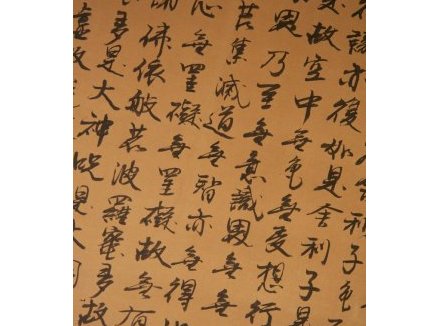 舍利子色
識亦復如是舍利子是
是故空中無色無受想行
界乃至無意識界無
苦集滅道無智亦無得
心無罣礙無罣礙故無有
佛依般若波羅蜜多故
多是大神咒是大明